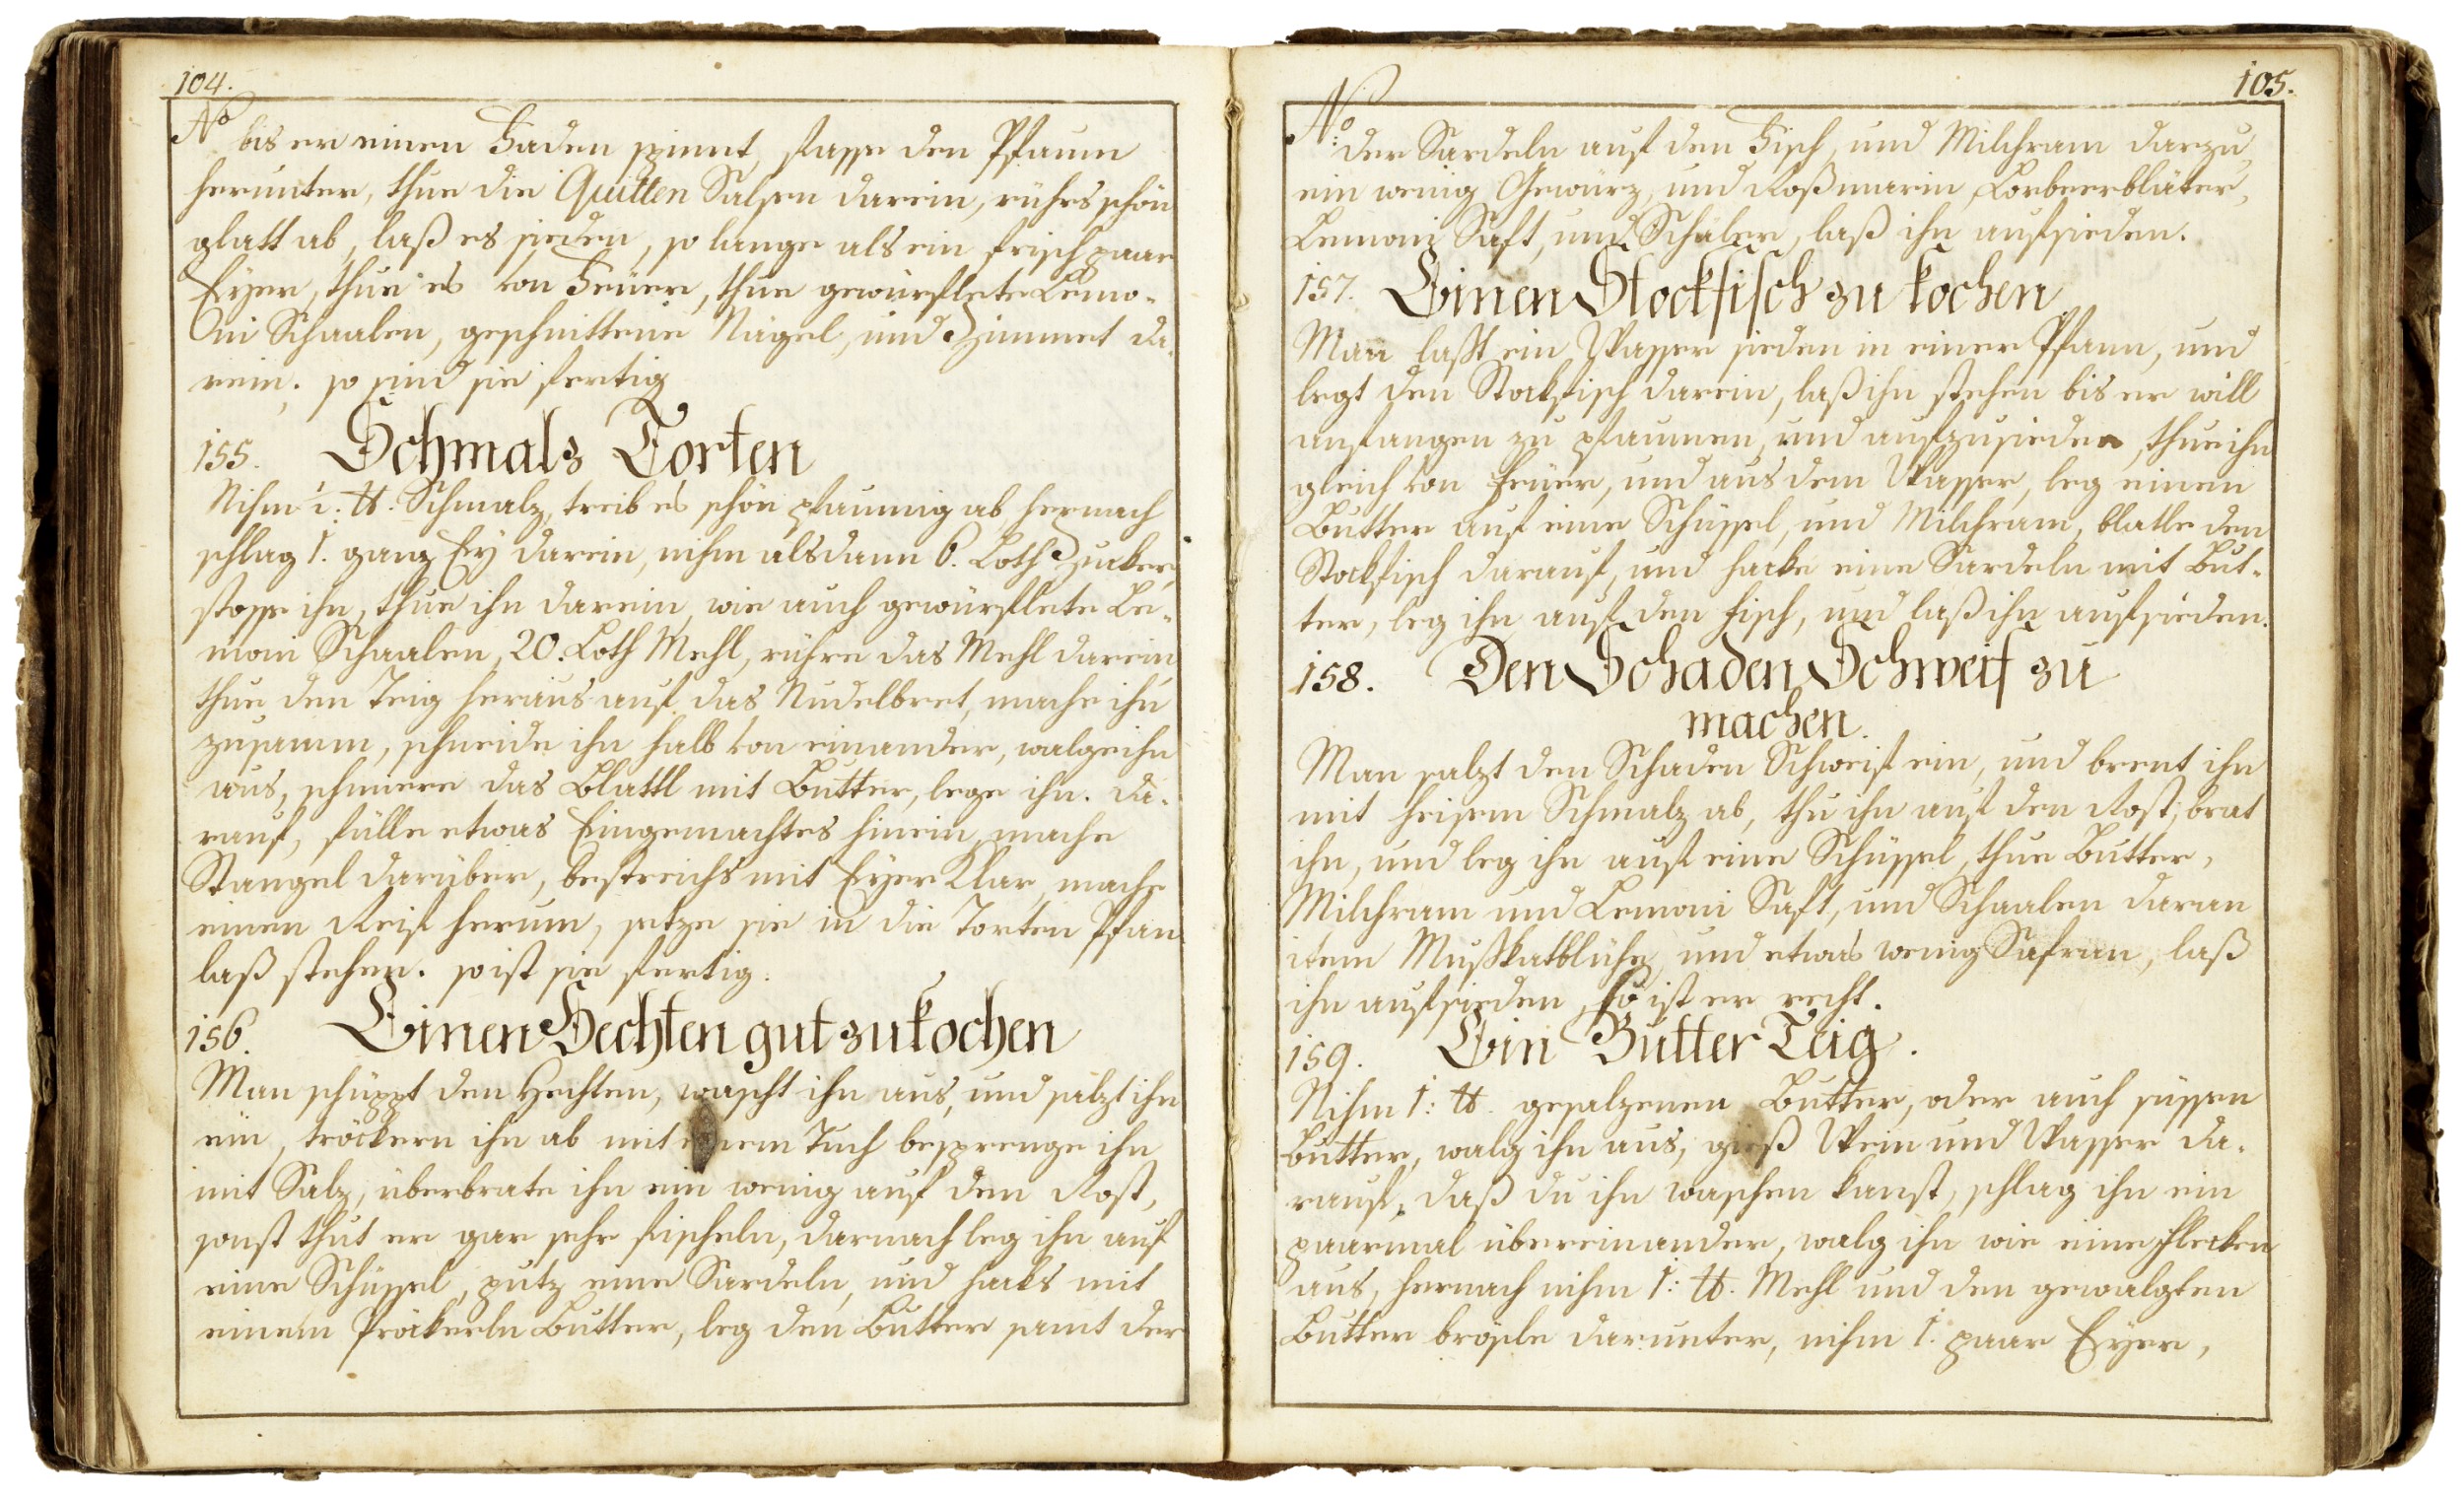 104.
No bis er einen Faden spinnt, fasse den Pfaum
herunter, thue die Quitten Salsen darein, rührs schön
glatt ab, laß es sieden, so lange als ein frisch paar
Eyer, thue es von Feuer, thue gewürflete Lemo-
ni Schaalen, geschnittene Nägel, und Zimmet da-
rein, so sind sie fertig
155. Schmalz Torten
Nihm ½: ℔. Schmalz, treib es schön pfaumig ab, hernach
schlag 1. ganz Ey darein, nihm alsdann 6. Loth Zucker,
stosse ihn, thue ihn darein, wie auch gewürflete Le-
moni Schaalen, 20. Loth Mehl, rühre das Mehl darein
thue den Teig heraus auf das Nudelbret, mache ihn
zusamm, schneide ihn halb von einander, walge ihn
aus, schmiere das Blattl mit Butter, lege ihn da-
rauf, fülle etwas Eingemachtes hinein, mache
Stangel darüber, bestreichs mit Eyer Klar, mache
einen Reif herum, setze sie in die Torten Pfan
laß stehen. so ist sie fertig.
156. Einen Hechten gut zu kochen
Man schüppt den Hechten, wascht ihn aus, und salzt ihn
ein, tröckern ihn ab mit einem Tuch besprenge ihn
mit Salz, überbrate ihn ein wenig auf dem Rost,
sonst thut er gar sehr fischeln, darnach leg ihn auf
eine Schüssel, putz eine Sardeln, und hacks mit
einem Bröckerln Butter, leg den Butter samt der
105.
No: der Sardeln auf den Fisch, und Milchram darzu,
ein wenig Gewürz, und Roßmarin, Lorbeerbläter,
Lemoni Saft, und Schäler, laß ihn aufsieden.
157. Einen Stockfisch zu kochen
Man laßt ein Wasser sieden in einer Pfann, und
legt den Stockfisch darein, laß ihn stehen bis er will
anfangen zu pfaumen, und aufzusieden, thue ihn
gleich von Feuer, und aus dem Wasser, leg einem
Butter auf eine Schüssel, und Milchram, blatle den
Stockfisch darauf, und hacke eine Sardeln mit But-
ter, leg ihn auf den Fisch, und laß ihn aufsieden.
158. Den Schaden Schweif zu
machen.
Man salzt den Schaden Schweif ein, und brent ihn
mit heisem Schmalz ab, thu ihn auf den Rost, brat
ihn, und leg ihn auf eine Schüssel, thue Butter,
Milchram und Lemoni Saft, und Schaalen daran
item Mußkatblühe, und etwas wenig Safran, laß
ihn aufsieden, so ist er recht.
159. Ein Butter Teig.
Nihm 1: ℔. gesalzenen Butter, oder auch süssen
Butter, walg ihn aus, gieß Wein und Wasser da-
rauf, daß du ihn waschen kanst, schlag ihn ein
paarmal übereinander, walg ihn wie eine Flecken
aus, hernach nihm 1: ℔. Mehl und den gewalgten
Butter brösle darunter, nihm 1. paar Eyer,